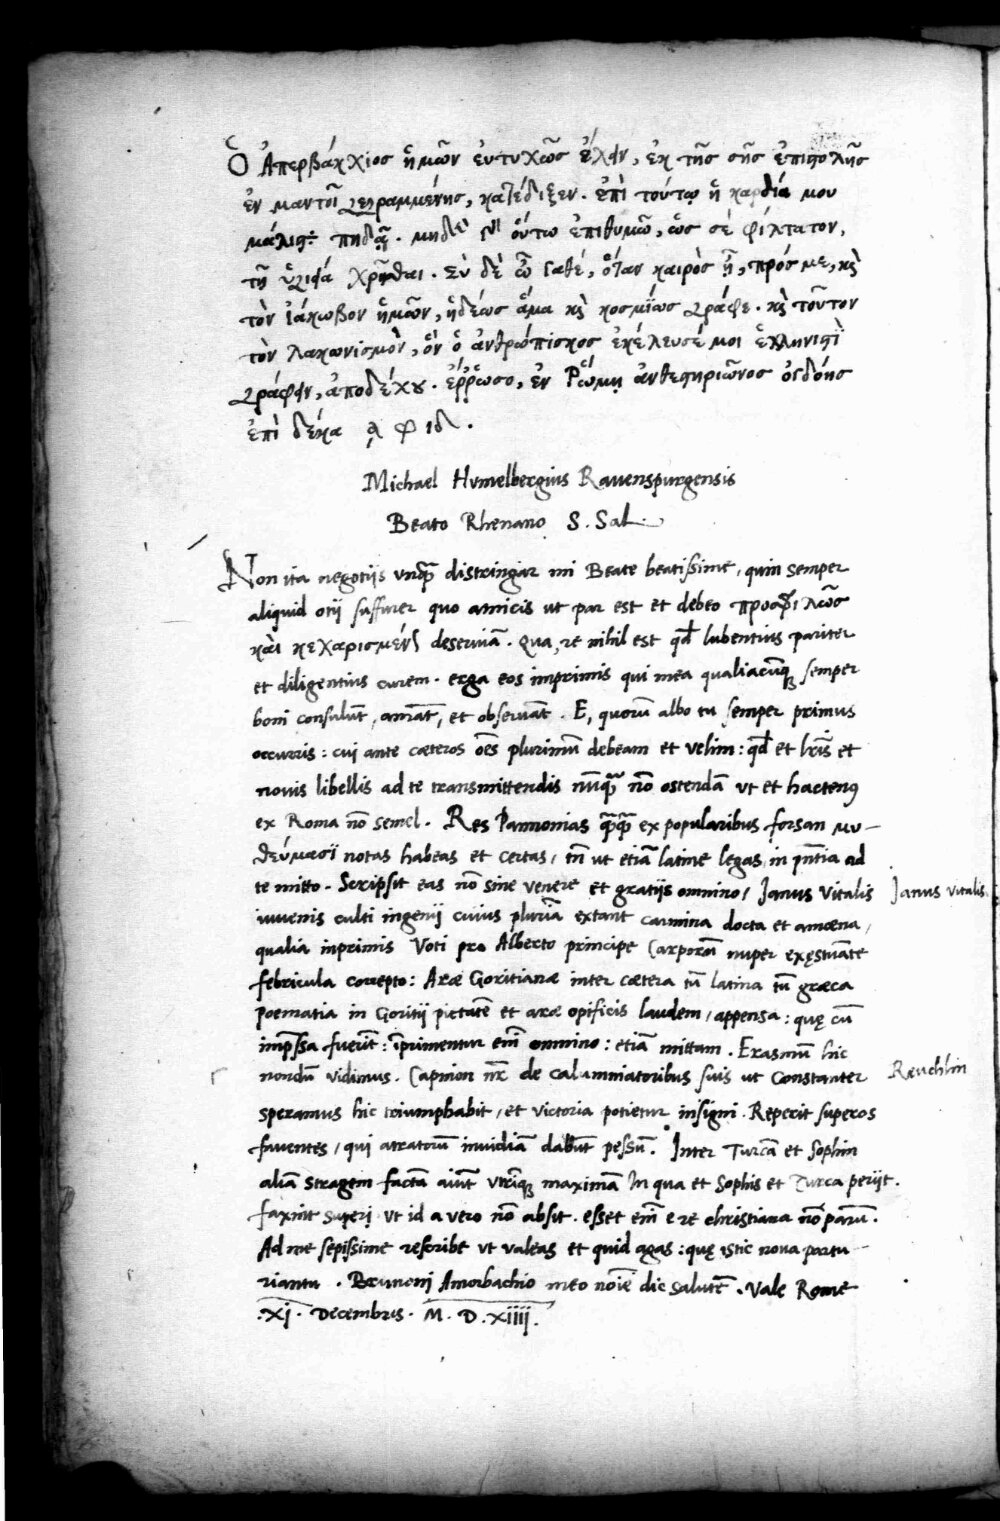 Ὁ Ἀπερβάκχιος ἡμῶν εὐτυχῶς ἐλθεῖν, ἐκ τῆς σῆς ἐπιστολῆς
ἐν μαντοΐ γεγραμμένης, κατέδιξεν. ἐπὶ τούτῳ ἡ καρδία μου
μάλιστα πηδᾷ. μηδενὶ οὕτω ἐπιθυμῶ, ὡς σέ φίλτατον,
τῇ ὑγιείᾳ χρῆσθαι. Σὺ δὲ ὦ γαθέ, ὅταν καιρὸς ᾖ, πρός με, καὶ
τὸν ἰάκωβον ἡμῶν, ἡδέως ἅμα καὶ κοσμίως γράφε. καὶ τοῦτον
τὸν λακωνισμὸν, ὃν ὁ ἀνθρώπισκος ἐκέλευσέ μοι ἑλληνιστὶ
γράφειν, ἀποδέχου. ἐῤῥωσο, ἐν Ῥώμῃ ἀνθεστηριῶνος ὀγδόης
ἐπὶ δέκα ͵α φ ιδ.
Michael Humelbergius Rauenspurgensis
Beato Rhenano S. Sal.
Non ita negotijs unq̃ distringar mi Beate beatissime, quin semper
aliquid otij suffurer quo amicis ut par est et debeo προσφιλῶς
καὶ κεχαρισμένως deseruiã. Qua re nihil est qd̃ lubentius pariter
et diligentius curem. erga eos imprimis qui mea qualiacũq; semper
boni consulũt, amãt, et obseruãt. E, quorũ albo tu semper primus
occurris: cui ante cæteros oẽs plurimũ debeam et uelim: qd̃ et lr̃is et
nouis libellis ad te transmittendis nũq̃ nõ ostendã ut et hactenus
ex Roma nõ semel. Res Pannonias q̃q̃ ex popularibus forsan μυ-
θεύμασϊ notas habeas et certas, tñ ut etiã latine legas, in pñtia ad
te mitto. Scripsit eas nõ sine uenere et gratijs omnino, Janus Vitalis
Janus Vitalis.
iuuenis culti ingenij cuius pluria extant carmina docta et amœna,
qualia inprimis Voti pro Alberto principe Carporũ nuper exęstuãte
febricula correpto: Aræ Goritianæ inter cætera tũ latina tũ græca
poematia in Goritij pietatẽ et aræ opificis laudem, appensa: quę cũ
imp̃ssa fuerĩt: ĩprimentur em̃ omnino: etiã mittam. Erasmũ hic
nondũ uidimus. Capnion nr̃ de calumniatoribus suis ut Constanter
Reuchlin
speramus hic triumphabit, et uictoria potietur insigni. Reperit superos
fauentes, qui atratorũ inuidiã dabũt pessũ. Inter Turcã et Sophin
aliã stragem factã aiũt utrĩq; maximã In qua et Sophis et Turca perijt.
faxint superi ut id a uero nõ absit. esset em̃ e re christiana nõ parũ.
Ad me sepissime rescribe ut ualeas et quid agas: quę istic noua partu-
riantur. Brunonj Amorbachio meo noĩe dic salutẽ. Vale Rome
.XI. Decembris. M. D. XIIII.